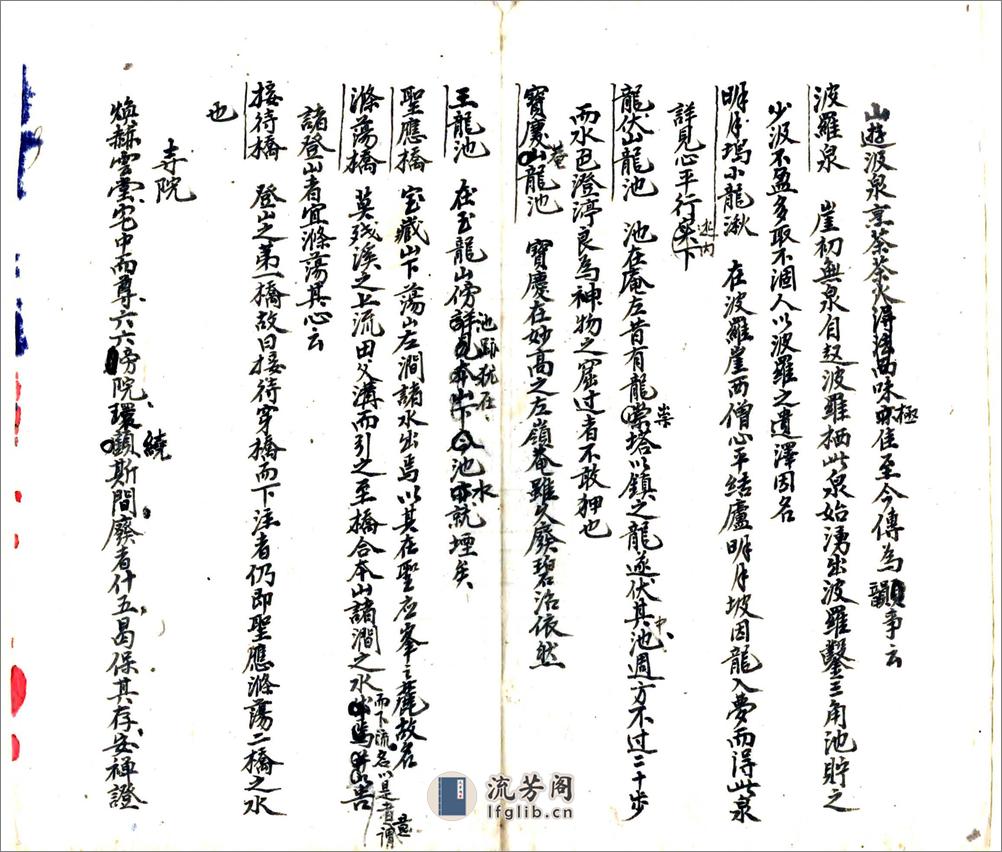 山遊汲泉烹茶茶火淂法而味極佳至今傳為韻事云
波羅泉 崖初無泉自趙波羅栖此泉始湧出波羅鑿三角池貯之
少汲不盈多取不涸人以波羅之遺澤因名
明月塢小龍湫 在波羅崖西僧心平結廬明月坡因龍入夢而得此泉
詳見心平行
龍伏山龍池 池在庵左昔有龍祟塔以鎮之龍遂伏其中池週方不过二十步
而水色澄渟良為神物之窟过者不敢狎也
寶慶菴龍池 寶慶在妙高之左嶺菴雖久廢碧沼依然
玉龍池 在玉龍山傍池跡犹在今池水就堙矣
聖應橋 宝藏山下蕩山左澗諸水出焉以其在聖应峯之麓故名
滌蕩橋 莫殘溪之上流田父溝而引之至橋合本山諸澗之水而下流名以是者謂
諸登山者宜滌蕩其心云
接待橋 登山之第一橋故曰接待穿橋而下注者仍即聖應滌蕩二橋之水
也
寺院
煥赫雲臺宅中而尊六六傍院環繞斯間廢者什五曷保其存安禅證
流芳阁
lfglib.cn